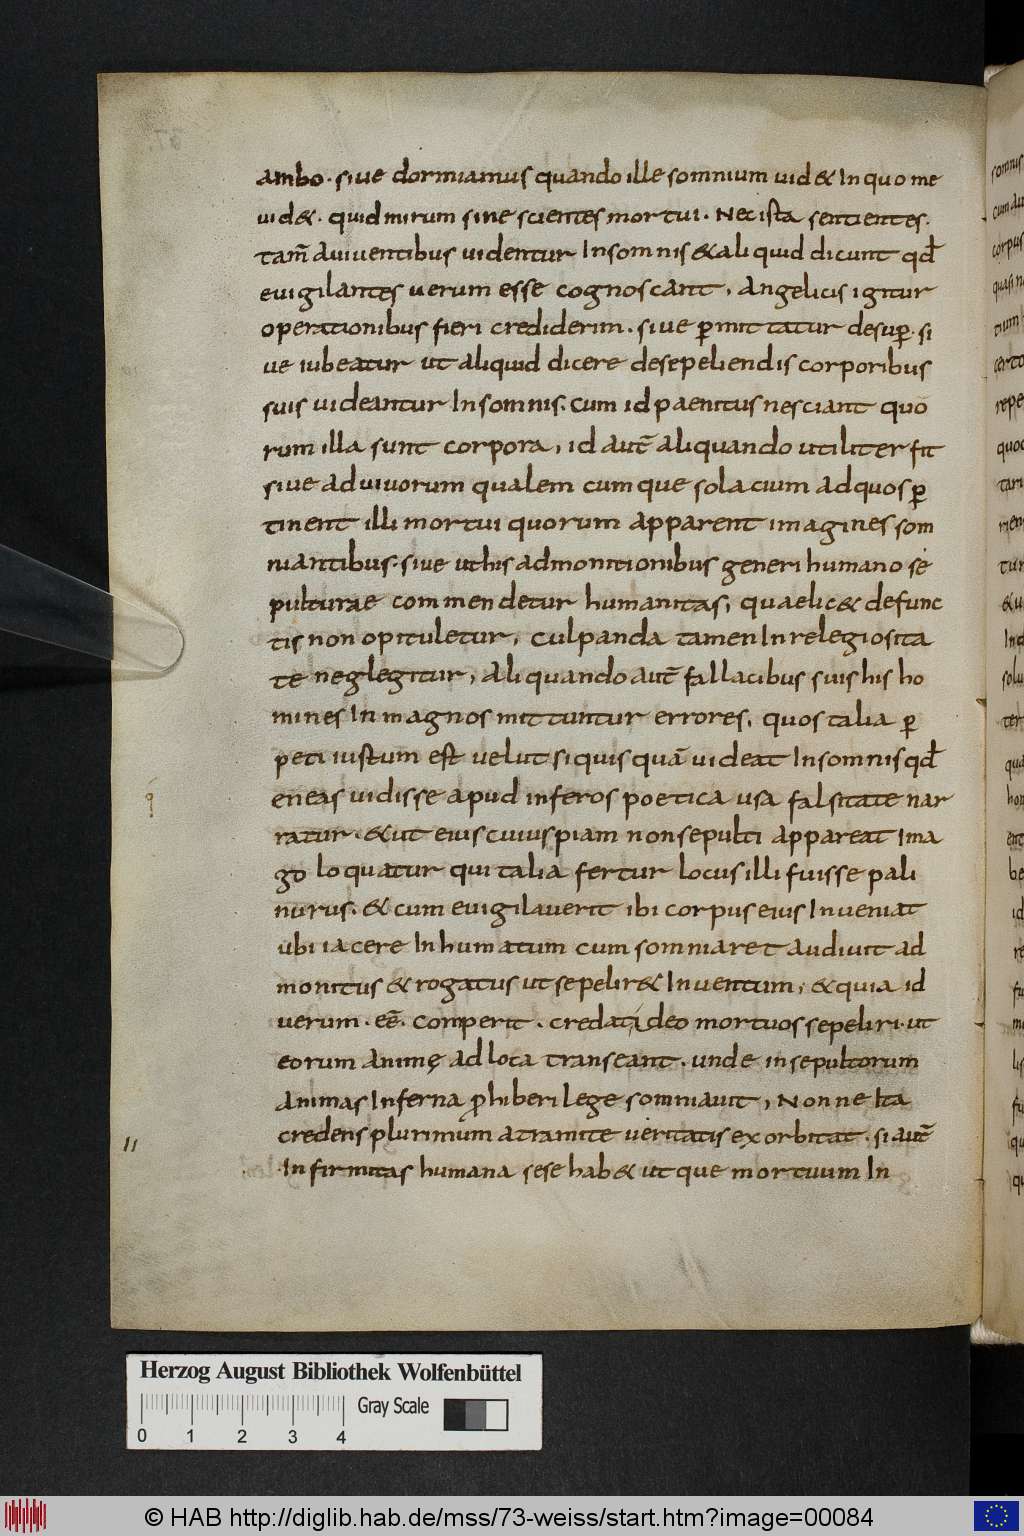 ambo. siue dormiamus quando ille somnium uid& In quo me
uid&. quid mirum sine scientes mortui. Nec ista sentientes.
tam̄ auiuentibus uidentur Insomnis & aliquid dicunt qd̄
euigilantes uerum esse cognoscant. Angelicis igitur
operationibus fieri crediderim. siue ꝑmittatur desuꝑ. si
ue iubeatur ut aliquid dicere desepeliendis corporibus
suis uideantur Insomnis. cum id paenitus nesciant quo
rum illa sunt corpora, id aut̄ aliquando utiliter fit
siue ad uiuorum qualem cumque solacium ad quos ꝑ
tinent illi mortui quorum apparent imagines som
niantibus. siue ut his admonitionibus generi humano se
pulturae commendetur humanitas, quae lic& defunc
tis non opituletur, culpanda tamen Inrelegiosita
te neglegitur, Aliquando aut̄ fallacibus suis his ho
mines In magnos mittuntur errores, quos talia ꝑ
peti iustum est uelut si quis quā uideat Insomnis qd̄
eneas uidisse apud inferos poetica usa falsitate nar
ratur. & ut eius cuiuspiam non sepulti appareat Ima
go loquatur qui talia fertur locus illi fuisse pali
nurus. & cum euigilauerit ibi corpus eius Inueniat
ubi iacere Inhumatum cum somniaret audiuit ad
monitus & rogatus ut sepelir& Inuentum, & quia id
uerum. eē. comperit. credat ideo mortuos sepeliri. ut
eorum animę ad loca transeant. unde insepultorum
Animas Inferna ꝓhiberi lege somniauit, Nonne Ita
credens plurimum a tramite ueritatis exorbitat. si aut̄
.Infirmitas humana sese hab& ut que mortuum In
Herzog August Bibliothek Wolfenbüttel
Gray Scale
0 1 2 3 4
© HAB http://diglib.hab.de/mss/73-weiss/start.htm?image=00084